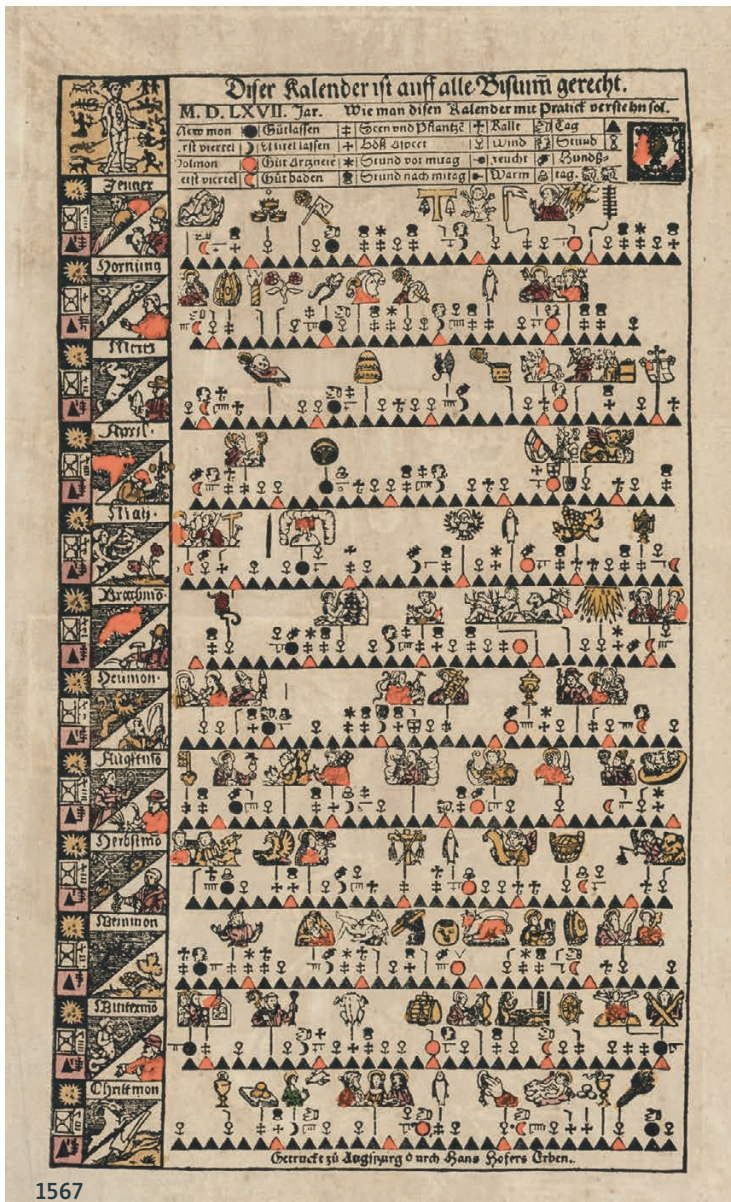 Diser Kalender ist auff alle Bistum̄ gerecht.
M. D. LXVII. Jar. Wie man disen Kalender mit Pratick verstehn sol.
New mon Gůtlassen Seen vnd Pflantzē Kalte Tag
Erst viertel Mittel lassen Böß Aspect Wind Stund
Volmon Gůt Artznei Stund vor mitag Feucht Hundß-
viertel Gůt baden Stund nach mitag Warm tag.
Jenner
Hornung
Mertz
April.
May.
Brachmō
Heumon.
Augstmō
Herbstmō
Weinmon
Wintermō
Christmon
Getruckt zů Augspurg durch Hans Hofers Erben.
1567